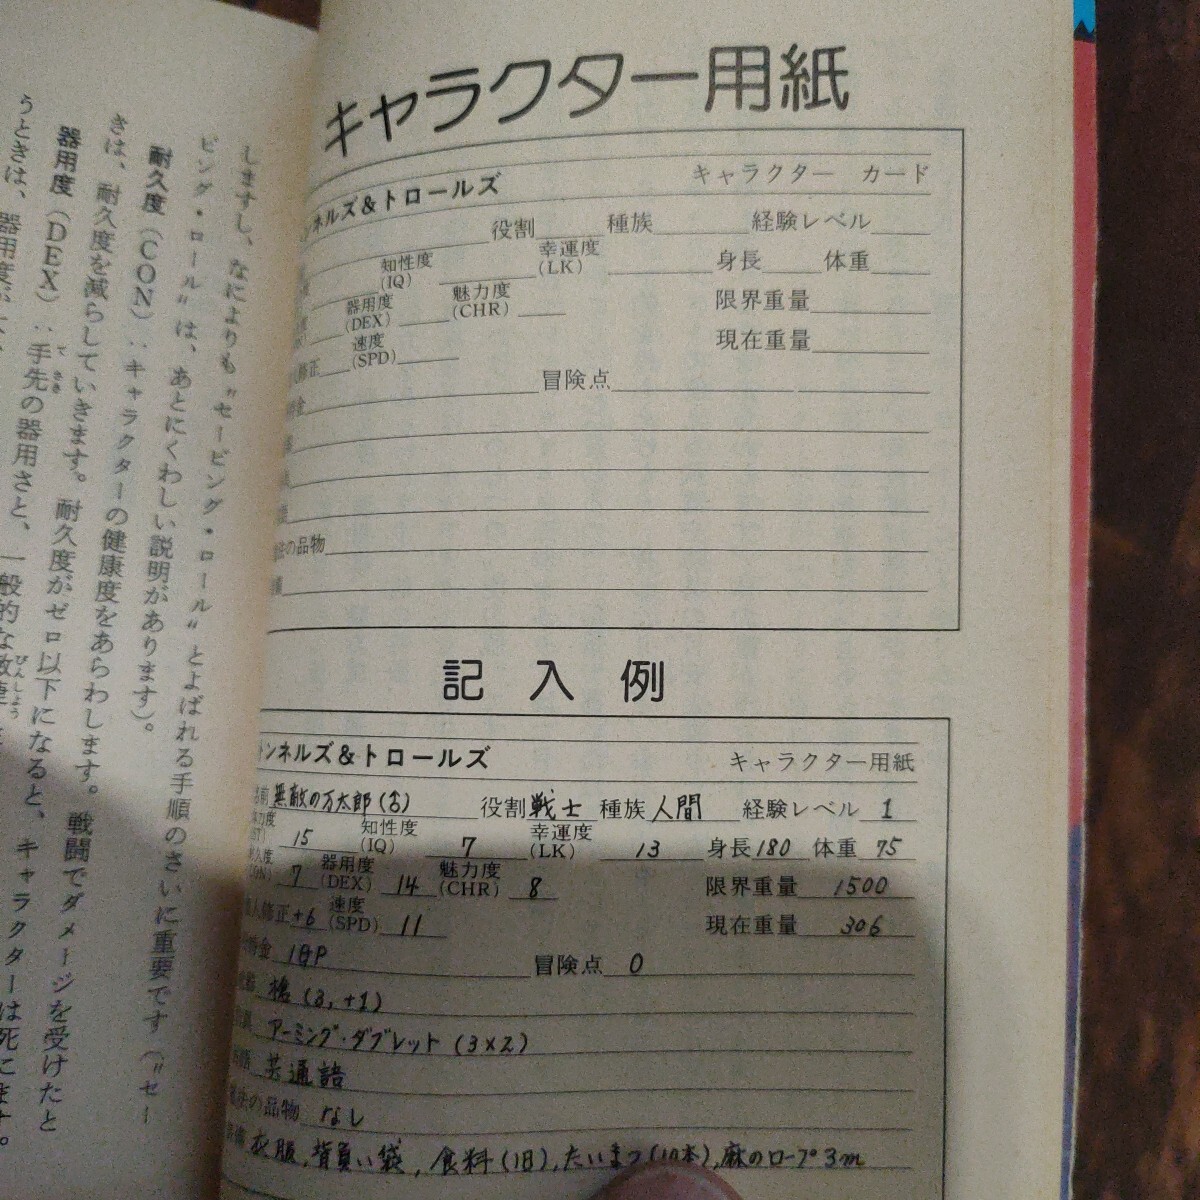 しますし、なによりも〝セービング・ロール〟とよばれる手順のさいに重要です(〝セー
ビング・ロール〟は、あとにくわしい説明があります)。
耐久度(CON)：キャラクターの健康度をあらわします。戦闘でダメージを受けたと
きは、耐久度を減らしていきます。耐久度がゼロ以下になると、キャラクターは死にます。
器用度(DEX)：手先の器用さと、一般的な敏捷
うときは、器用度が
キャラクター用紙
ンネルズ&トロールズ キャラクター カード
役割 種族 経験レベル
知性度(IQ) 幸運度(LK) 身長 体重
器用度(DEX) 魅力度(CHR) 限界重量
修正 速度(SPD) 現在重量
金 冒険点
の品物
記入例
トンネルズ&トロールズ キャラクター用紙
名前 無敵の万太郎(♂) 役割 戦士 種族 人間 経験レベル 1
15 知性度(IQ) 7 幸運度(LK) 13 身長 180 体重 75
耐久度 7 器用度(DEX) 14 魅力度(CHR) 8 限界重量 1500
個人修正 +6 速度(SPD) 11 現在重量 306
金 1GP 冒険点 0
槍(3,+1)
アーミング・ダブレット(3×2)
共通語
魔法の品物 なし
衣服, 背負い袋, 食料(1日), たいまつ(10本), 麻のロープ3m